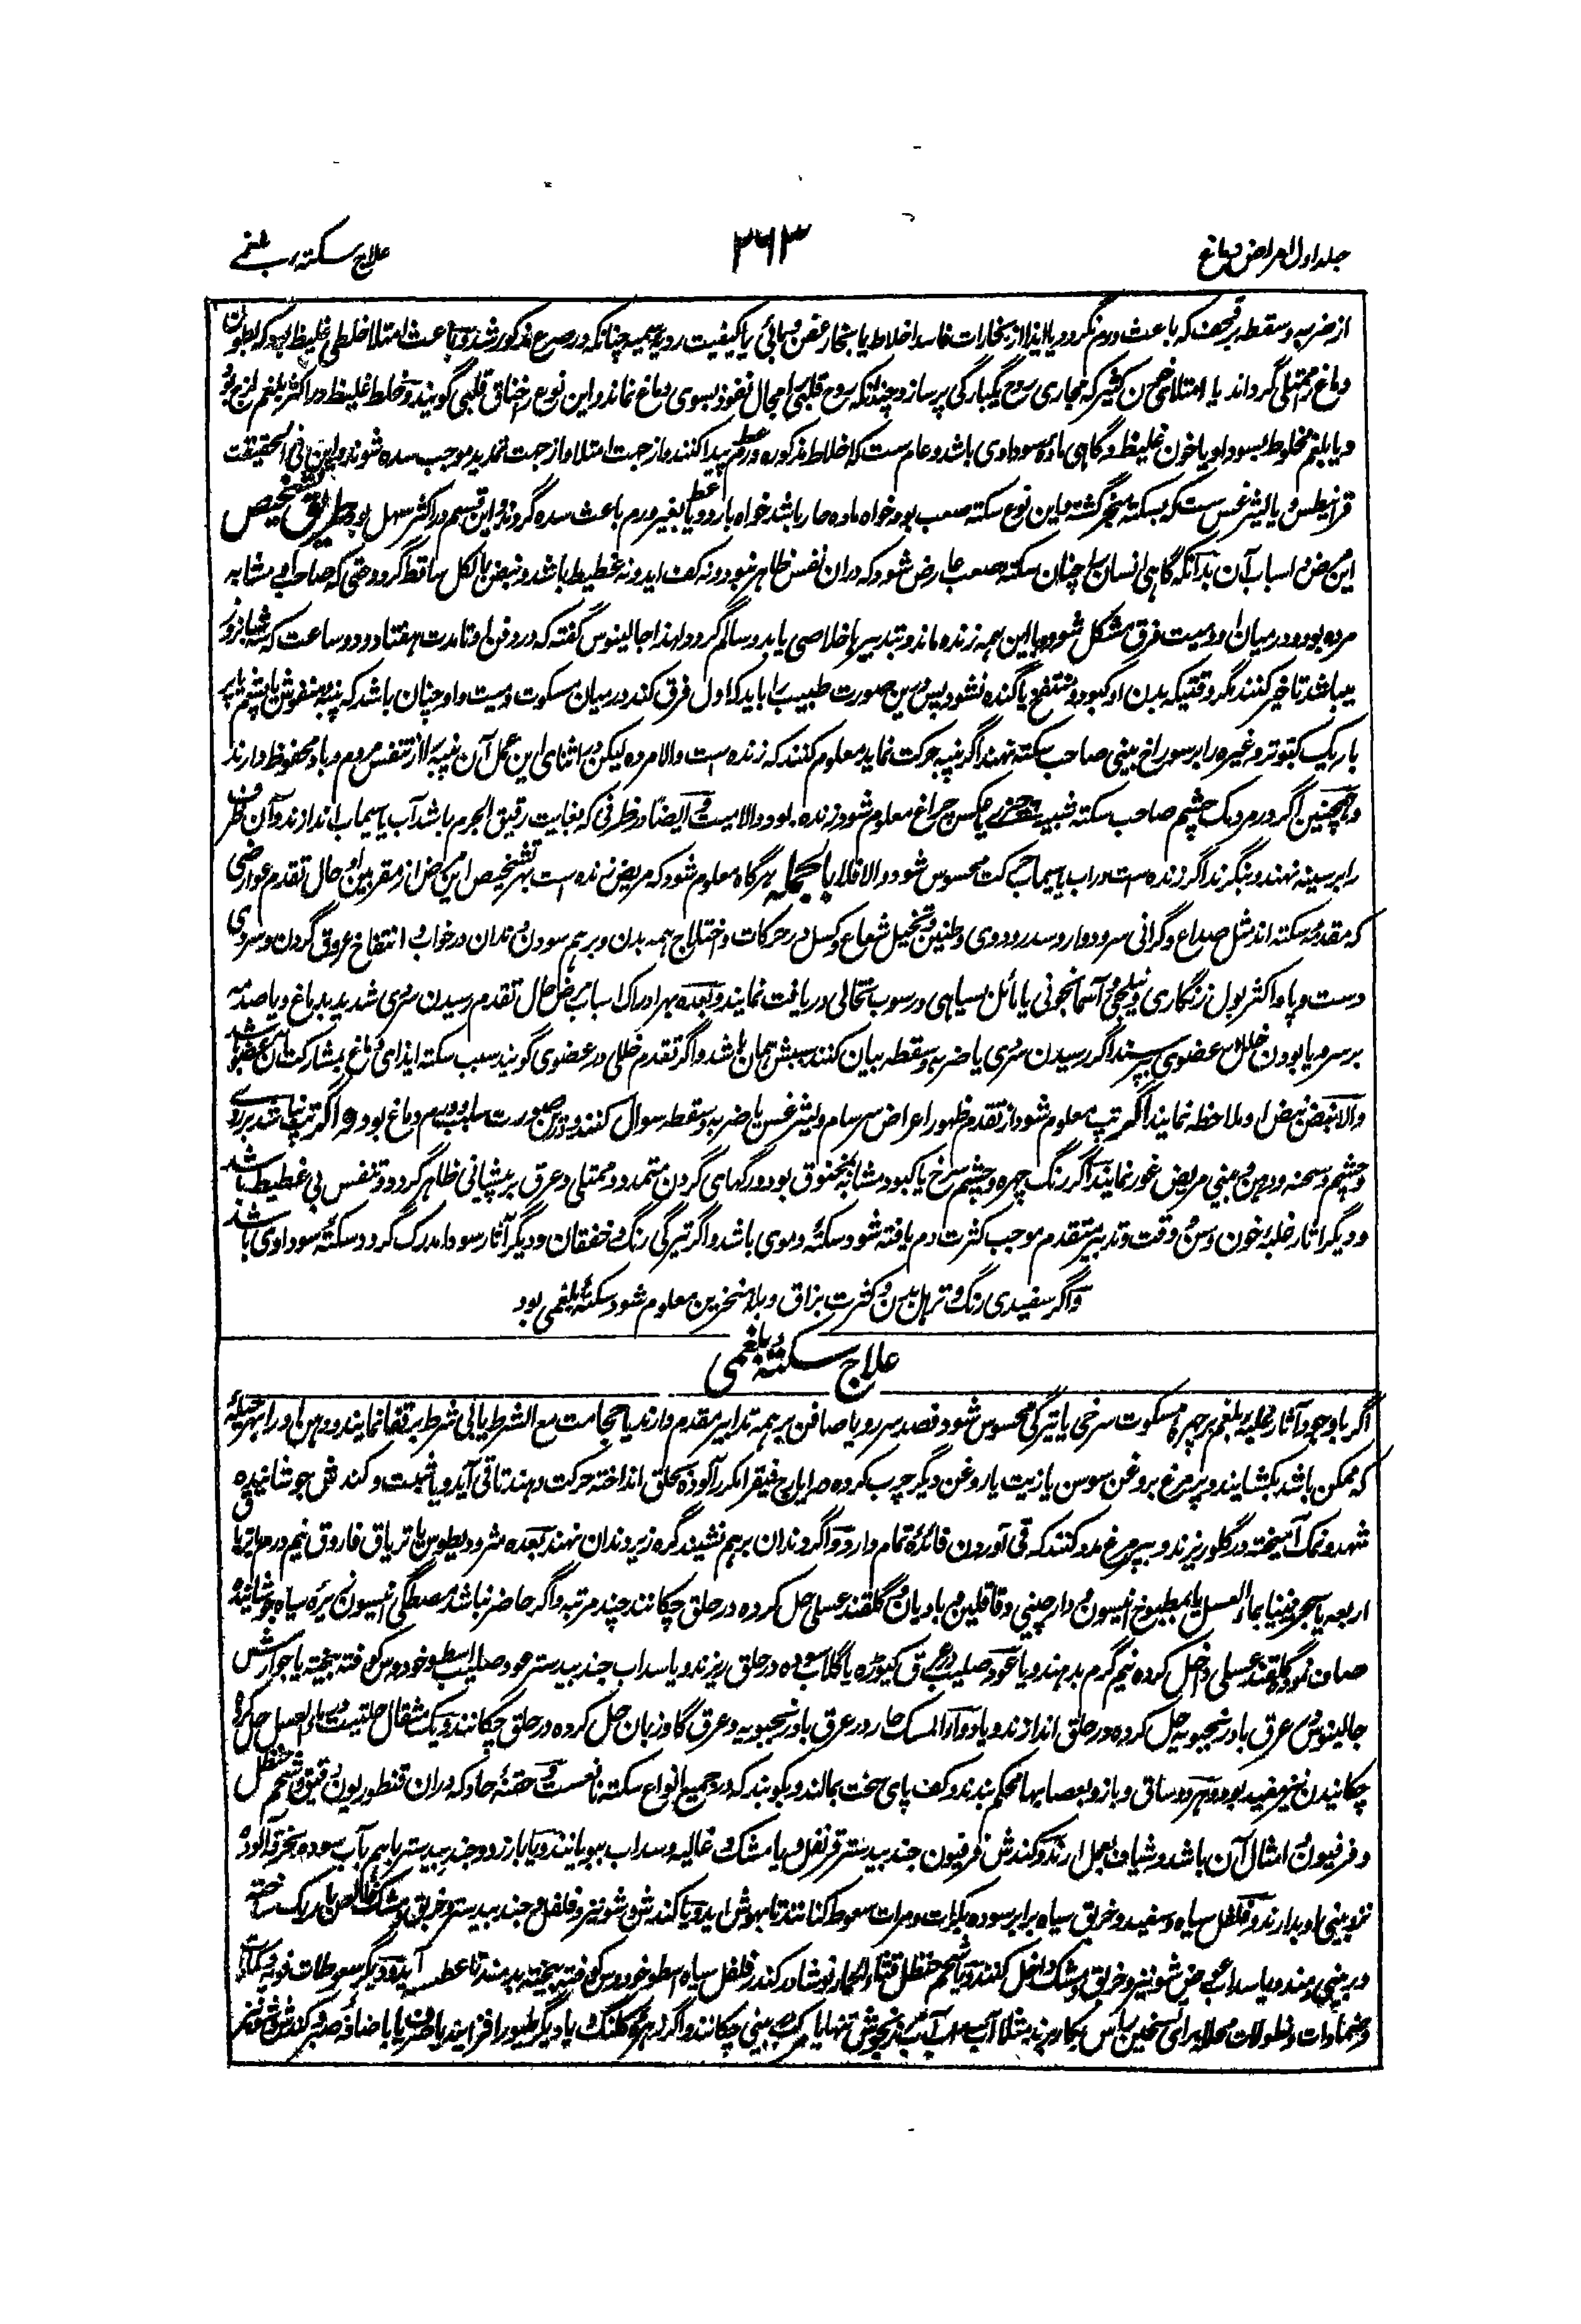 جلد اول امراض دماغ
۳۶۳
علاج سکته بلغمی
از ضربه و سقطه بر قحف که باعث ورم نگردد یا ایذا از بخارات فاسد اخلاط یا بخار عفن وبائی یا کیفیت ردیه سمیه چنانکه در صرع مذکور شد و یا باعث امتلا خلطی غلیظ بود که بطون
دماغ را ممتلی گرداند یا امتلای خون کثیر که مجاری روح یکبارگی پر سازد چندانکه روح قلبی را مجال نفوذ بسوی دماغ نماند و این نوع را خناق قلبی گویند و خلط غلیظ در اکثر بلغم لزج بود
و یا بلغم مخلوط بسودا و یا خون غلیظ و گاهی ماده سوداوی باشد و عام ست که اخلاط مذکوره ورم پیدا کنند و از جهت امتلا و از جهت تمدید موجب سده شوند و این فی الحقیقت
قرانیطس و یا لیثرغس ست که بسکته منجر گشته و این نوع سکته صعب بود خواه ماده حار باشد خواه بارد و یا بغیر ورم باعث سده گردند و این قسم در اکثر سهل بود طریق تشخیص
این مرض و اسباب آن بدانکه گاهی انسان را چنان سکته صعب عارض شود که دران نفس ظاهر نبود و نه کف آید و نه غطیط باشد و نبض بالکل ساقط گردد حتی که صاحب او مشابه
مرده بود و در میان او و میت فرق مشکل شود و با این همه زنده ماند و بتدبیر یا خلاصی یابد و سالم گردد لهذا جالینوس گفته که در دفن او تا مدت هفتاد و دو ساعت که سه شبانروز
میباشد تاخیر کنند مگر وقتیکه بدن او کبود و منتفخ یا گنده نشود پس درین صورت طبیب را باید که اول فرق کند در میان مسکوت و میت و او چنان باشد که پنبه منفوش یا پشم یا پر
باریک کبوتر و غیره را بر سوراخ بینی صاحب سکته نهند اگر پنبه حرکت نماید معلوم کنند که زنده است والا مرده لیکن در اثنای این عمل آن پنبه را از تنفس مردم و باد محفوظ دارند
و همچنین اگر در مردمک چشم صاحب سکته شبیه چیزی یا عکس چراغ معلوم شود زنده بود والا میت و ایضاً در ظرفی که بغایت رقیق الجرم باشد آب یا سیماب اندازند و آن ظرف
را بر سینه نهند و بنگرند اگر زنده ست در آب یا سیماب حرکت محسوس شود و الا فلا بالجمله هرگاه معلوم شود که مریض زنده است بهر تشخیص این مرض از مقربین او حال تقدم عوارضی
که مقدمه سکته اند مثل صداع و گرانی سر و دوار و سدر و دوی و طنین و تخیل شعاع و کسل در حرکات و اختلاج همه بدن و بر هم سودن دندان در خواب و انتفاخ عروق گردن و سردی
دست و پا و اکثر بول زنگاری و نیلجی و آسمانجونی یا مائل بسیاهی و رسوب نخالی دریافت نمایند و بعده بهر ادراک اسباب مرض حال تقدم رسیدن سردی شدید بدماغ و یا صدمه
بر سر و یا بودن خلل در عضوی بپرسند اگر رسیدن سردی یا ضربه و سقطه بیان کنند سببش همان باشد و اگر تقدم خللی در عضوی گویند سبب سکته ایذای دماغ بمشارکت آن عضو باشد
والا نبض مریض را ملاحظه نمایند اگر تپ معلوم شود از تقدم ظهور اعراض سرسام و لیثرغس یا ضربه و سقطه سوال کنند و درین صورت سبب ورم دماغ بود و اگر تپ نباشد بر روی
و چشم و سحنه و دهن و بینی مریض غور نمایند اگر رنگ چهره و چشم سرخ یا کبود مشابه مخنوق بود و رگهای گردن متمدد و ممتلی و عرق بر پیشانی ظاهر گردد و تنفس بی غطیط باشد
و دیگر آثار غلبه خون و سن و وقت و تدبیر متقدم موجب کثرت دم یافته شود سکته دموی باشد و اگر تیرگی رنگ و خفقان و دیگر آثار سودا مدرک گردد سکته سوداوی باشد
و اگر سفیدی رنگ و ترهل بدن و کثرت بزاق و بلة منخرین معلوم شود سکته بلغمی بود
علاج سکته بلغمی
اگر با وجود آثار غلبه بلغم بر چهره مسکوت سرخی یا تیرگی محسوس شود فصد سررو یا صافن بر همه تدابیر مقدم دارند یا حجامت مع الشرط یا بی شرط بر قفا نمایند و دهن او را بهر حیله
که ممکن باشد بکشایند و پر مرغ بروغن سوسن یا زیت یا روغن دیگر چرب کرده در ایارج فیقرا مکرر آلوده بحلق انداخته حرکت دهند تا قی آید و یا شبت و کندش جوشانیده
شهد و نمک آمیخته در گلو ریزند و به پر مرغ مدد کنند که قی آوردن فائده تمام دارد و اگر دندان بر هم نشیند گره زیر دندان نهند بعده مثرودیطوس یا تریاق فاروق نیم درم یا تریاق
اربعه یا سنجرینیا بماء العسل یا بمطبوخ انیسون و دارچینی و قاقلین و بادیان و گلقند عسلی حل کرده در حلق چکانند چند مرتبه و اگر حاضر نباشد مصطگی انیسون زیره سیاه جوشانیده
صاف نموده گلقند عسلی داخل کرده نیم گرم بدهند و یا عود صلیب در عرق کیوڑه یا گلاب سوده در حلق ریزند و یا سداب جند بیدستر عود صلیب اسطوخودوس کوفته بیخته یا جوارش
جالینوس در عرق بادرنجبویه حل کرده در حلق اندازند و یا دواء المسک حار در عرق بادرنجبویه و عرق گاوزبان حل کرده در حلق چکانند و یک مثقال حلتیت در ماء العسل حل کرده
چکانیدن نیز مفید بود و هر دو ساق و بازو بعصابها محکم بندند و کف پای سخت بمالند و بکوبند که در جمیع انواع سکته نافعست و حقنه حاد که دران قنطوریون دقیق و شحم حنظل
و فرفیون و امثال آن باشد و شیاف بعمل آرند و کندش فرفیون جند بیدستر قرنفل و یا مشک و غالیه و سداب ببویانند و یا بارزد و جند بیدستر باهم بآب سوده بخرقه آلوده
نزد بینی او بدارند و فلفل سیاه و سفید و خربق سیاه برابر سوده بکرات و مرات سعوط کنانند تا بهوش آید و یا کندش و شونیز و فلفل و جند بیدستر و خربق و مشک خالص باریک ساخته
در بینی دمند و یا سداب عوض شونیز و خربق و مشک داخل کنند و یا شحم حنظل قثاء الحمار نوشادر کندر فلفل سیاه اسطوخودوس کوفته بیخته بدمند تا عطسه آید و دیگر سعوطات قویه
و ضمادات و نطولات محلله برای تسخین راس بکار برند مثلا آب سداب آب مرزنجوش تنها یا مرکب به بینی چکانند و اگر زهره کلنگ یا دیگر طیور افزایند یا باضافه صبر و کندش و شونیز